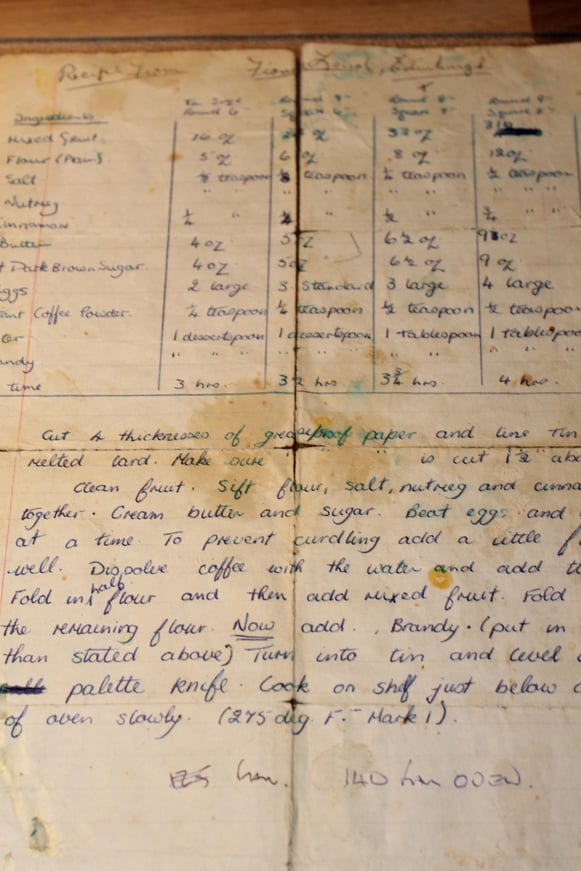 Receipt From From Edinburgh
Tin Size Round 8" Round 8" Round 9"
Round 6" Square 6" Square 7" Square 8"
Ingredients
Mixed fruit. 16 oz oz 32 oz
Flour (Plain) 5 oz 6 oz 8 oz 12 oz
Salt ⅛ teaspoon teaspoon ¼ teaspoon ½ teaspoon
Nutmeg " " " " " " " "
innamon ¼ " " ½ " ¾ "
Butter 4 oz 5 oz 6½ oz 9 oz
t Dark Brown Sugar. 4 oz 5 oz 6½ oz 9 oz
ggs 2 large 3 Standard 3 large 4 large
ant Coffee Powder. ¼ teaspoon ¼ teaspoon ½ teaspoon ½ teaspoo
ter 1 dessertspoon 1 dessertspoon 1 Tablespoon 1 Tablespoo
andy " " " " " " "
time 3 hrs. 3½ hrs 3¾ hrs. 4 hrs.
Cut 4 thicknesses of greaseproof paper and line tin
melted lard. Make sure " " is cut 1½" abo
clean fruit. Sift flour, salt, nutmeg and cinna
together. Cream butter and sugar. Beat eggs and
at a time. To prevent curdling add a little f
well. Dissolve coffee with the water and add t
Fold in half flour and then add mixed fruit. Fold
the remaining flour. Now add. Brandy. (put in
than stated above) Turn into tin and level
palette knife. Cook on shelf just below c
of oven slowly. (275 deg. F. - Mark 1).
fan. 140 fan oven.